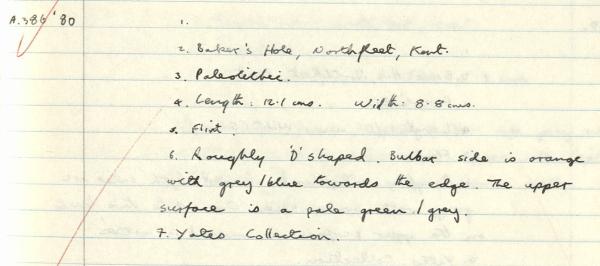 A.386 '80
1.
2. Baker's Hole, Northfleet, Kent.
3. Paleolithic.
4. Length: 12.1 cms. Width: 8.8 cms.
5. Flint
6. Roughly 'D' shaped. Bulbar side is orange
with grey/blue towards the edge. The upper
surface is a pale green/grey.
7. Yates Collection.